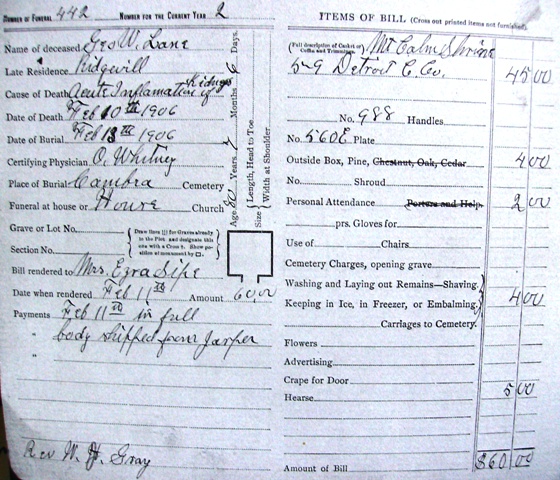 NUMBER OF FUNERAL 442 NUMBER FOR THE CURRENT YEAR 2
Name of deceased Geo W. Lane
Late Residence Ridgevill
Cause of Death Acute Inflamation of Kidneys
Date of Death Feb 10th 1906
Date of Burial Feb 13th 1906
Certifying Physician O. Whitney
Place of Burial Cambra Cemetery
Funeral at house or House Church
Age 80 Years 7 Months 6 Days.
Size { Length, Head to Toe
Width at Shoulder
Grave or Lot No.
Section No.
{ Draw lines (||) for Graves already in the Plot and designate this one with a Cross †. Show position of monument by □. }
Bill rendered to Mrs. Ezra Sipe
Date when rendered Feb 11th Amount 60,00
Payments Feb 11th in full
" body shipped from Jasper
"
Rev W. H. Gray
ITEMS OF BILL (Cross out printed items not furnished.)
(Full description of Casket or Coffin and Trimmings.) Mt Calm Shrine
5-9 Detroit C. Co. 45 00
No. 988 Handles
No. 560E Plate
Outside Box, Pine, Chestnut, Oak, Cedar 4 00
No. Shroud
Personal Attendance Porters and Help. 2 00
prs. Gloves for
Use of Chairs
Cemetery Charges, opening grave
Washing and Laying out Remains—Shaving.
Keeping in Ice, in Freezer, or Embalming. } 4 00
Carriages to Cemetery.
Flowers
Advertising
Crape for Door
Hearse 5 00
Amount of Bill $60 00